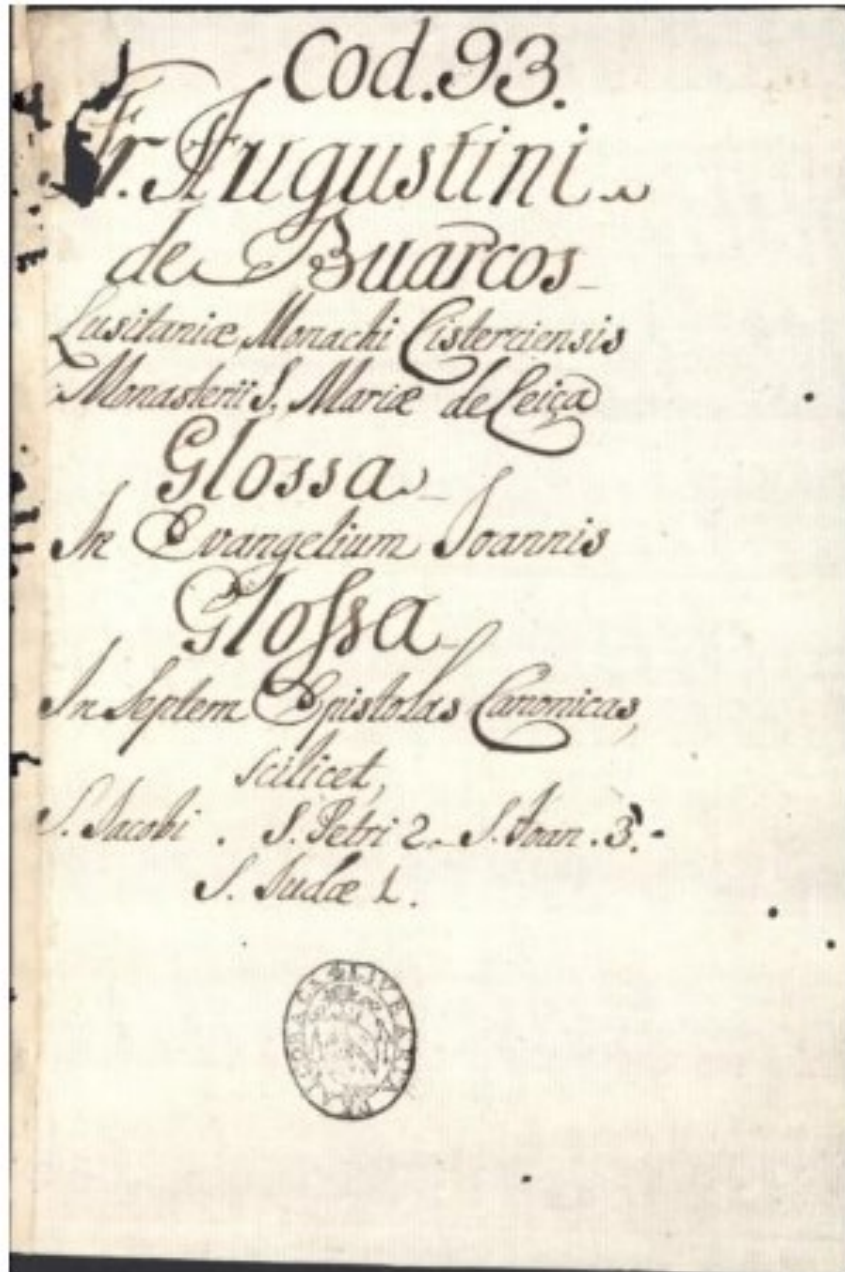 Cod. 93.
Fr. Augustini
de Buarcos
Lusitaniæ, Monachi Cisterciensis
Monasterii S. Mariæ de Ceiça
Glossa
In Evangelium Joannis
Gloſsa
In Septem Epistolas Canonicas,
scilicet,
S. Jacobi . S. Petri 2. S. Joan. 3.
S. Judæ 1.
LIVRARIA